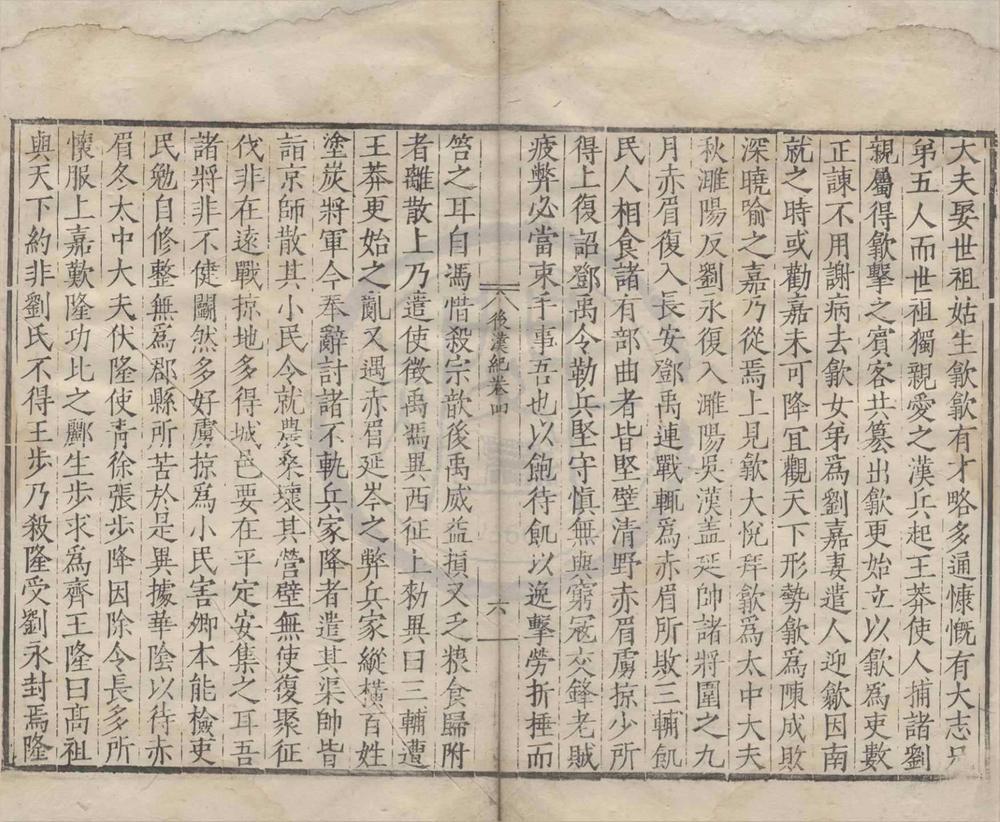 大夫娶世祖姑生歙歙有才略多通慷慨有大志兄
弟五人而世祖獨親愛之漢兵起王莽使人捕諸劉
親屬得歙擊之賓客共篡出歙更始立以歙為吏數
正諫不用謝病去歙女弟為劉嘉妻遣人迎歙因南
就之時或勸嘉未可降宜觀天下形勢歙為陳成敗
深曉喻之嘉乃從焉上見歙大悅拜歙為太中大夫
秋濉陽反劉永復入濉陽吳漢蓋延帥諸將圍之九
月赤眉復入長安鄧禹連戰輒為赤眉所敗三輔飢
民人相食諸有部曲者皆堅壁清野赤眉虜掠少所
得上復詔鄧禹令勒兵堅守慎無與窮寇交鋒老賊
疲弊必當束手事吾也以飽待飢以逸擊勞折捶而
後漢紀卷四
六
笞之耳自馮愔殺宗歆後禹威益損又乏粮食歸附
者離散上乃遣使徵禹馮異西征上勑異曰三輔遭
王莽更始之亂又遇赤眉延岑之弊兵家縱橫百姓
塗炭將軍今奉辭討諸不軌兵家降者遣其渠帥皆
詣京師散其小民令就農桑壞其營壁無使復聚征
伐非在遠戰掠地多得城邑要在平定安集之耳吾
諸將非不健鬭然多好虜掠為小民害卿本能檢吏
民勉自修整無為郡縣所苦於是異據華陰以待赤
眉冬太中大夫伏隆使青徐張步降因除令長多所
懷服上嘉歎隆功比之酈生步求為齊王隆曰高祖
與天下約非劉氏不得王步乃殺隆受劉永封焉隆